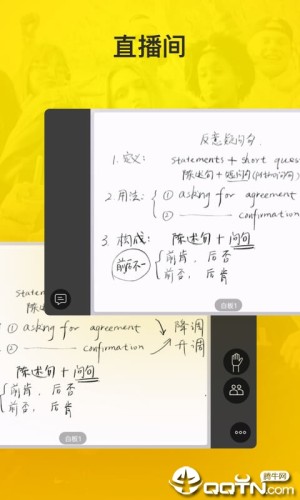 直播间
反意疑问句
1. 定义: statements + short ques
陈述句 + 短问句
2. 用法: ① asking for agreement
② ——— confirmation
3. 构成: 陈述句 + 问句
前后不一 前肯, 后否
前否, 后肯
白板1
陈述
① asking for agreement 降调
——— confirmation 升调
陈述句 + 问句
前肯, 后否
前否, 后肯
白板1
腾牛网
QQTN.com